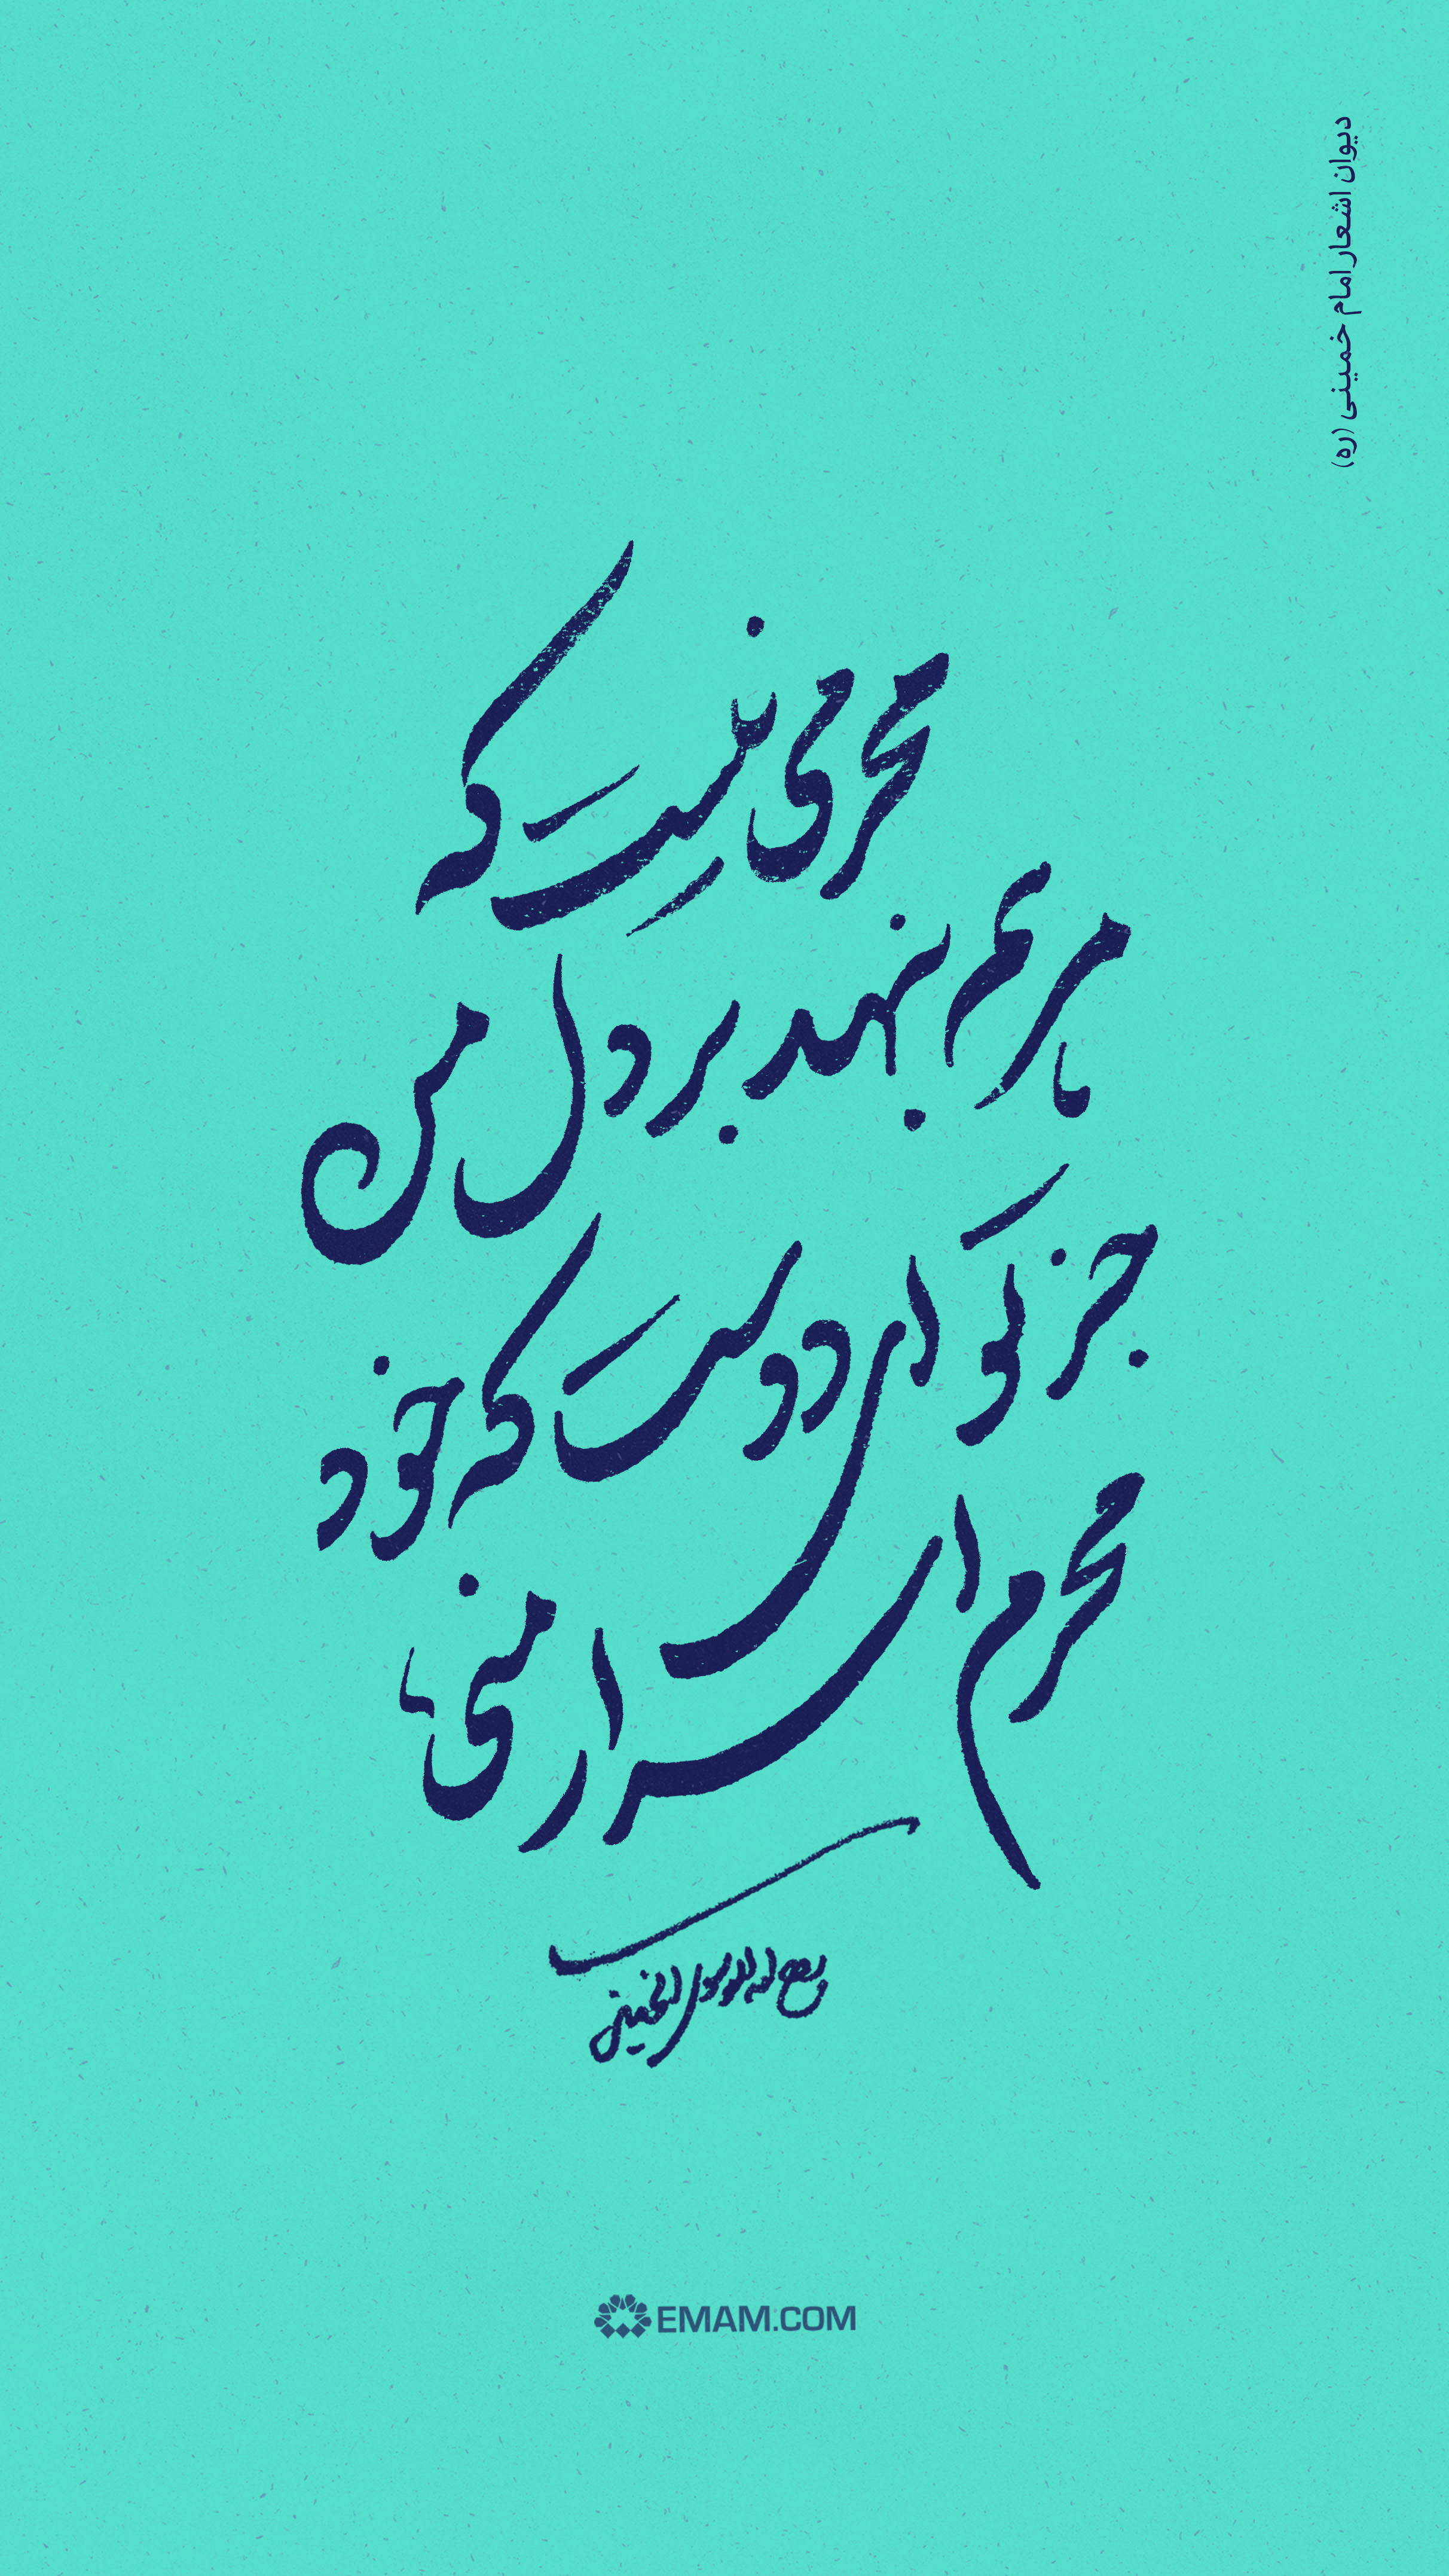 دیوان اشعار امام خمینی (ره)
محرمی نیست که
مرهم بنهد بر دل من
جز تو ای دوست که خود
محرم اسرار منی
روح الله الموسوی الخمینی
EMAM.COM